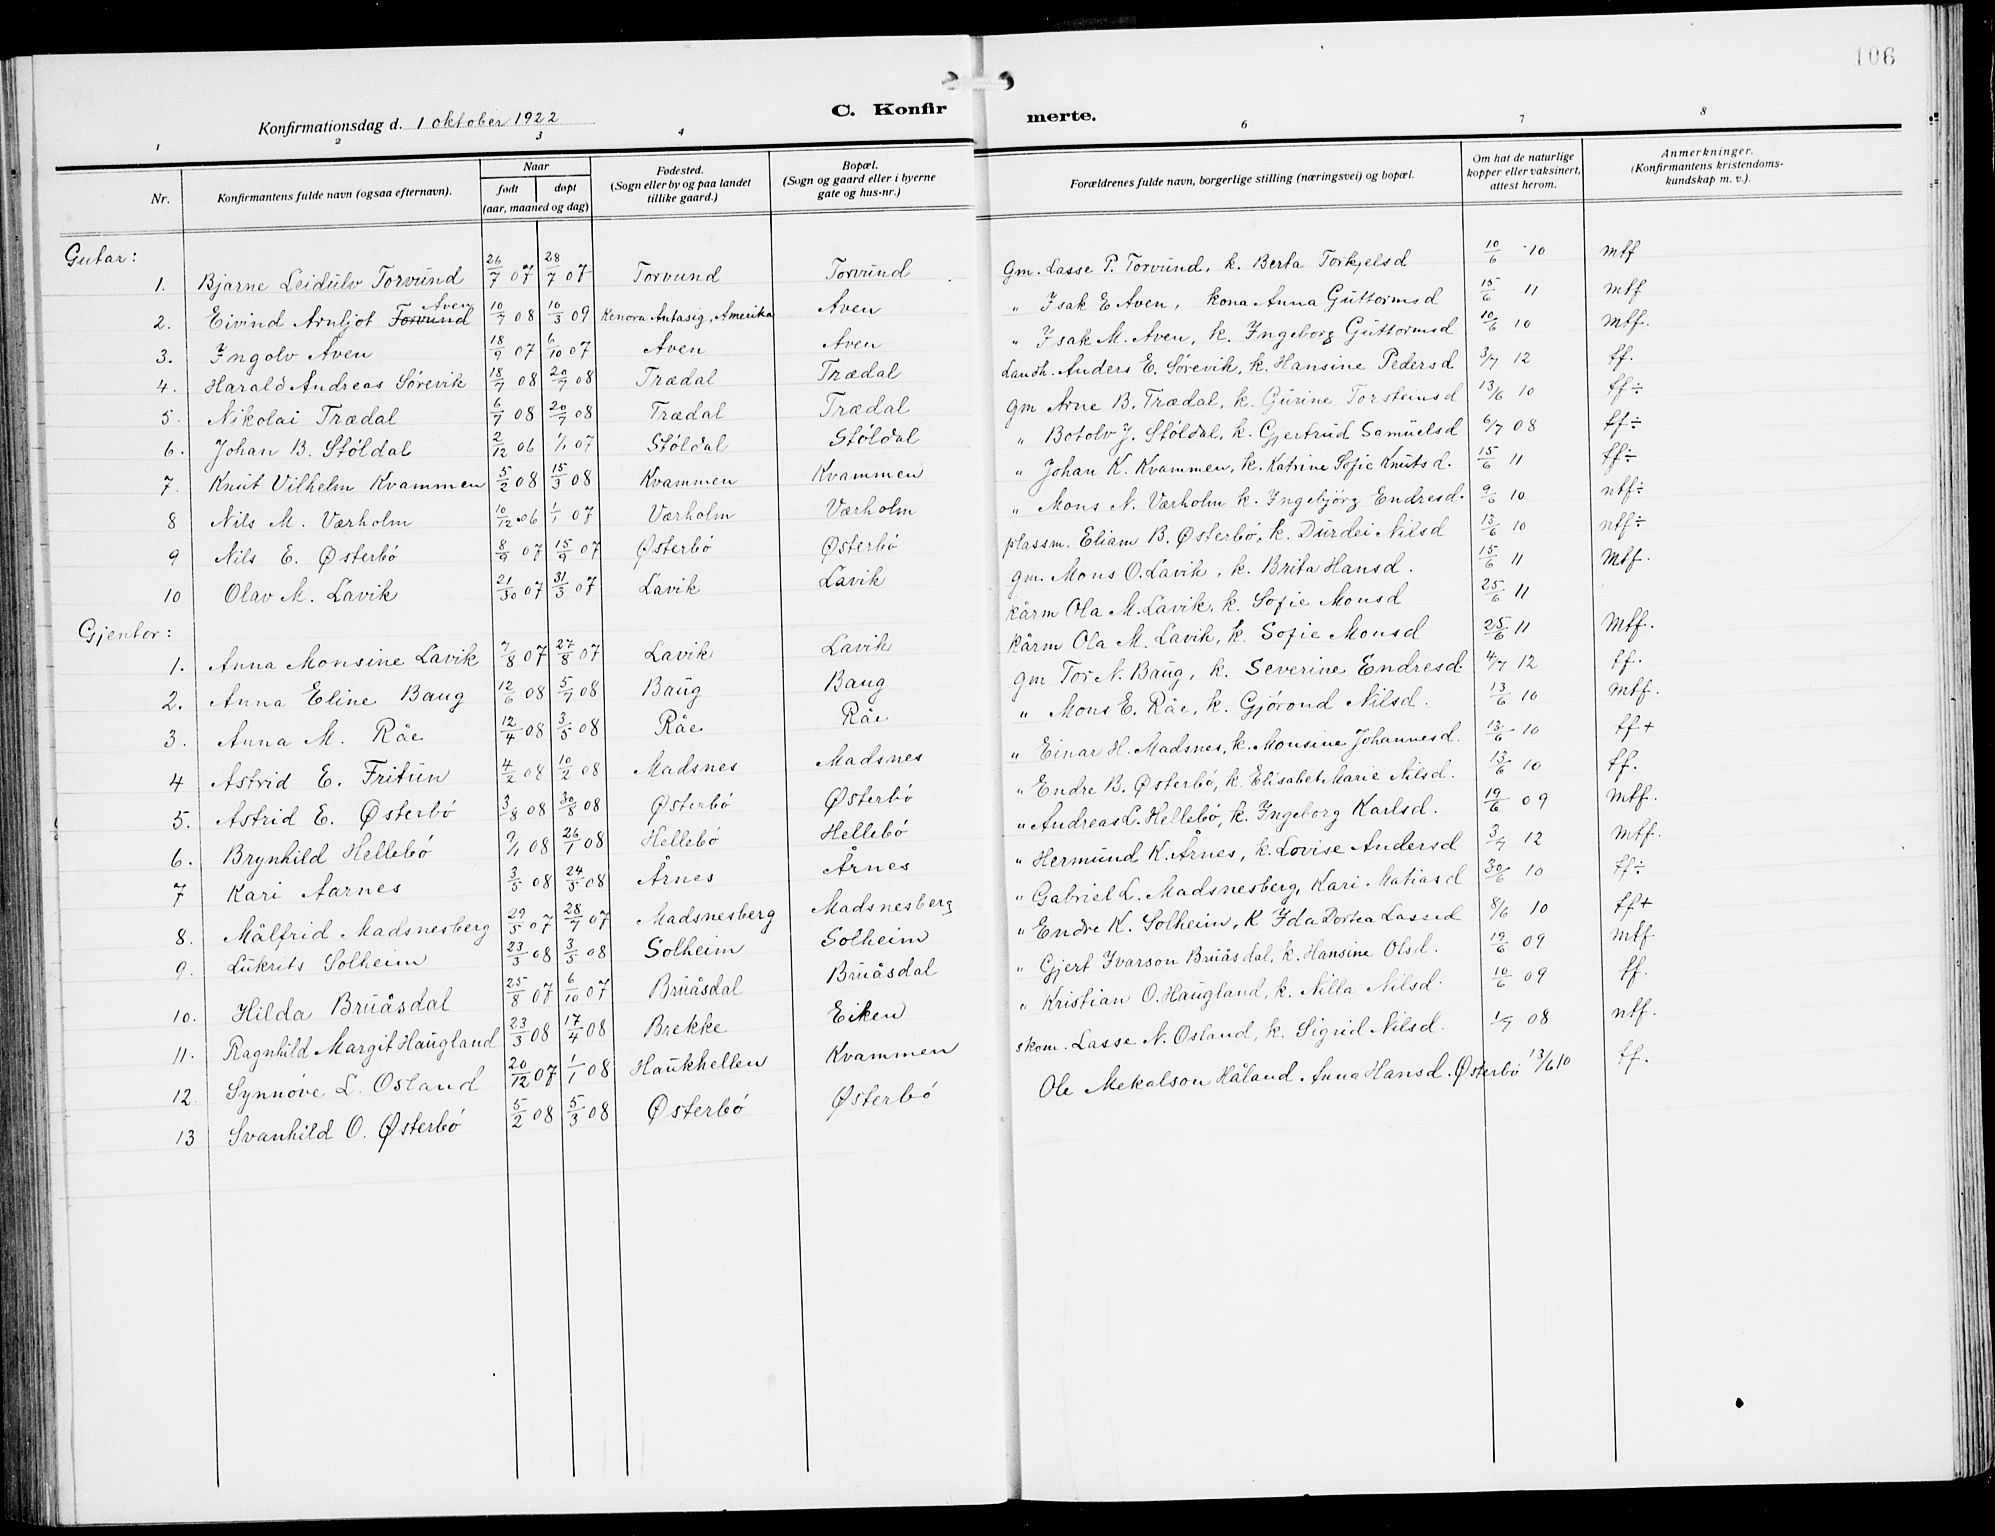 106
Konfirmationsdag d. 1 oktober 1922 C. Konfirmerte.
1 2 3 4 6 7 8
Nr. Konfirmantens fulde navn (ogsaa efternavn). Naar født døpt (aar, maaned og dag) Fødested. (Sogn eller by og paa landet tillike gaard.) Bopæl. (Sogn og gaard eller i byerne gate og hus-nr.) Forældrenes fulde navn, borgerlige stilling (næringsvei) og bopæl. Om hat de naturlige kopper eller vaksinert, attest herom. Anmerkninger. (Konfirmantens kristendoms-kundskap m. v.).
Gutar:
1. Bjarne Leidulv Torvund 26/7 07 28/7 07 Torvund Torvund Gm. Lasse P. Torvund, k. Berta Torkjelsd 10/6 10 mtf
2. Eivind Arnljot Torvund Aven 10/7 08 16/3 09 Kenora Antasig, Amerika Aven " Isak E Aven, kona Anna Guttormsd 15/6 11 mtf
3. Ingolv Aven 18/9 07 6/10 07 Aven Aven " Isak M. Aven, k. Ingeborg Guttormsd 10/6 10 mtf.
4. Harald Andreas Sörevik 18/7 08 20/9 08 Trædal Trædal Landh. Anders E. Sörevik, k. Hansine Pedersd 3/7 12 tf.
5. Nikolai Trædal 6/7 08 20/9 08 Trædal Trædal gm Arne B. Trædal, k. Gurine Torsteinsd 13/6 10 tf÷
6. Johan B. Stöldal 2/12 06 1/1 07 Stöldal Stöldal " Botolv J. Stöldal, k. Gjertrud Samuelsd 6/7 08 tf÷
7. Knut Vilhelm Kvammen 5/2 08 15/3 08 Kvammen Kvammen " Johan K. Kvammen, k. Katrine Sofie Knutsd. 15/6 11 tf÷
8 Nils M. Værholm 10/12 06 1/1 07 Værholm Værholm " Mons N. Værholm k. Ingebjörg Endresd. 9/6 10 ntf÷
9 Nils E. Østerbö 8/9 07 15/9 07 Østerbö Østerbö plassm. Eliam B. Østerbö, k. Durdei Nilsd 13/6 10 ntf÷
10 Olav M. Lavik 21/30 07 31/3 07 Lavik Lavik gm. Mons O. Lavik, k. Brita Hansd. 15/6 11 Mtf.
kårm Ola M. Lavik, k. Sofie Monsd 25/6 11
Gjentor:
1. Anna Monsine Lavik 7/8 07 27/8 07 Lavik Lavik kårm Ola M. Lavik, k. Sofie Monsd 25/6 11 Mtf.
2. Anna Eline Baug 12/6 08 5/7 08 Baug Baug gm Tor N. Baug, k. Severine Endresd. 4/7 12 tf.
3. Anna M. Råe 12/4 08 3/5 08 Råe Råe " Mons E. Råe, k. Gjörond Nilsd. 13/6 10 mtf.
4 Astrid E. Fritun 4/2 08 10/2 08 Madsnes Madsnes " Einar H. Madsnes, k. Monsine Johannesd. 13/6 10 tf+
5. Astrid E. Østerbö 3/8 08 30/8 08 Østerbö Østerbö " Endre B. Østerbö, k. Elisabet Marie Nilsd. 13/6 10 tf.
6. Brynhild Hellebö 9/1 08 26/1 08 Hellebö Hellebö " Andreas L. Hellebö, k. Ingeborg Karlsd. 19/6 09 mtf.
7 Kari Aarnes 3/5 08 24/5 08 Årnes Årnes " Hermund K. Årnes, k. Lovise Andersd 3/7 12 mtf.
8. Målfrid Madsnesberg 29/5 07 28/7 07 Madsnesberg Madsnesberg " Gabriel L. Madsnesberg, Kari Matiasd 30/6 10 tf÷
9. Lukrits Solheim 23/3 08 3/5 08 Solheim Solheim " Endre K. Solheim, K Ida Dortea Lassed 8/6 10 tf+
10. Hilda Bruåsdal 25/8 07 6/10 07 Bruåsdal Bruåsdal " Gjert Ivarson Bruåsdal, k. Hansine Olsd. 19/6 09 mtf
11. Ragnhild Margit Haugland 23/3 08 17/4 08 Brekke Eiken " Kristian O. Haugland, k. Nilla Nilsd. 10/6 09 tf.
12. Synnöve L. Osland 20/12 07 1/1 08 Haukhellen Kvammen skom. Lasse N. Osland, k. Sigrid Nilsd. 1/7 08 ntf.
13 Svanhild O. Østerbö 5/2 08 5/3 08 Østerbö Østerbö Ole Mekalson Håland. Anna Hansd. Østerbö 13/6 10 tf.